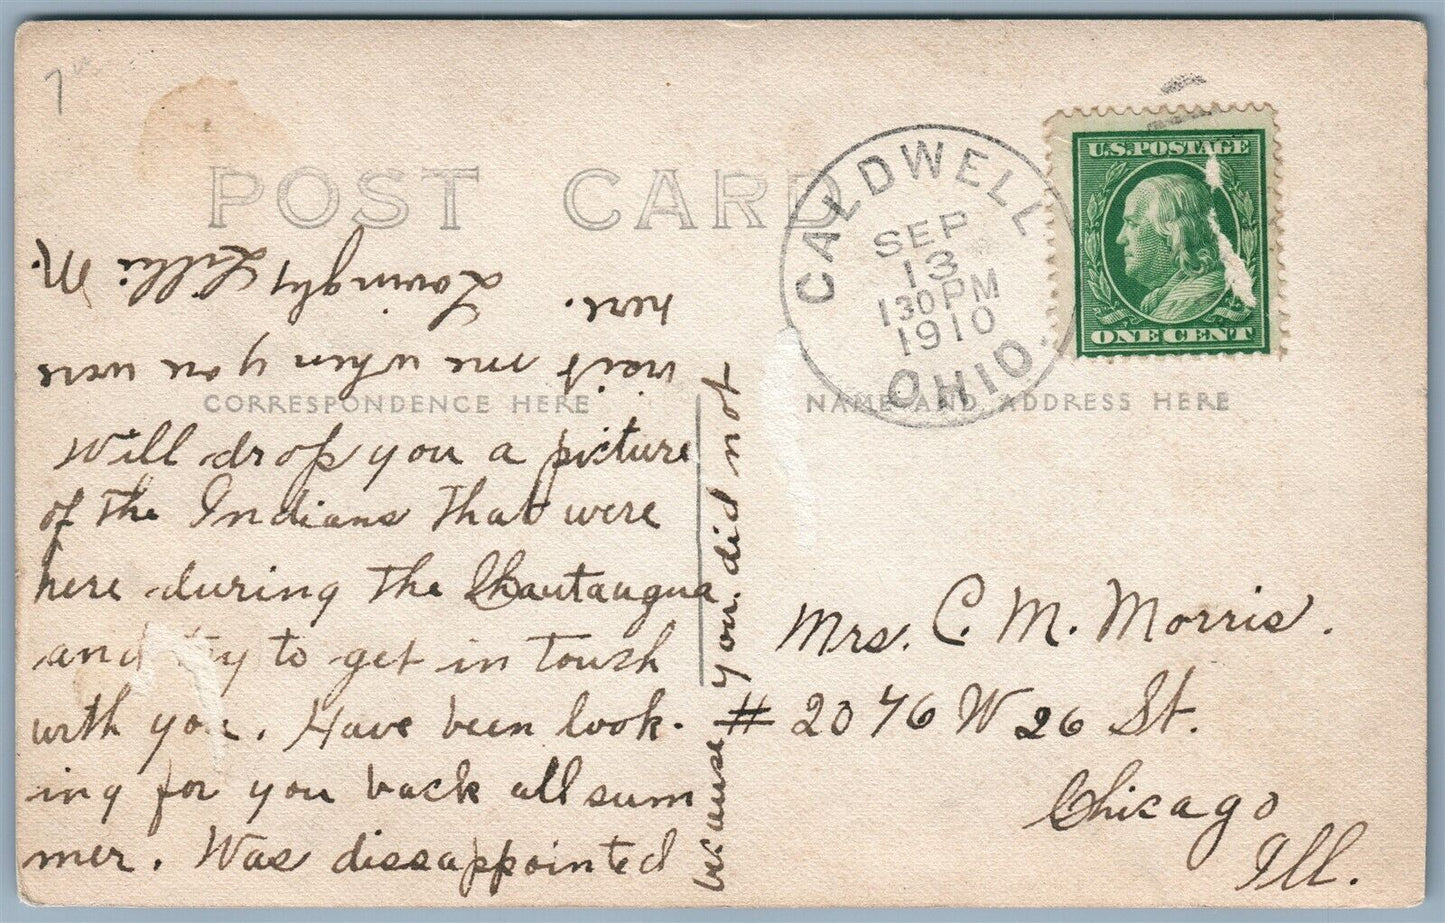 7
POST CARD
CALDWELL
SEP
13
130PM
1910
OHIO.
U.S.POSTAGE
ONE CENT
CORRESPONDENCE HERE
NAME AND ADDRESS HERE
Will drop you a picture
of the Indians that were
here during the Chautaugua
and try to get in touch
with you. Have been look-
ing for you back all sum
mer. Was dissappointed
because you did not
visit me when you were
here. Lovingly Lillie M.
Mrs. C. M. Morris.
# 2076 W 26 St.
Chicago
Ill.